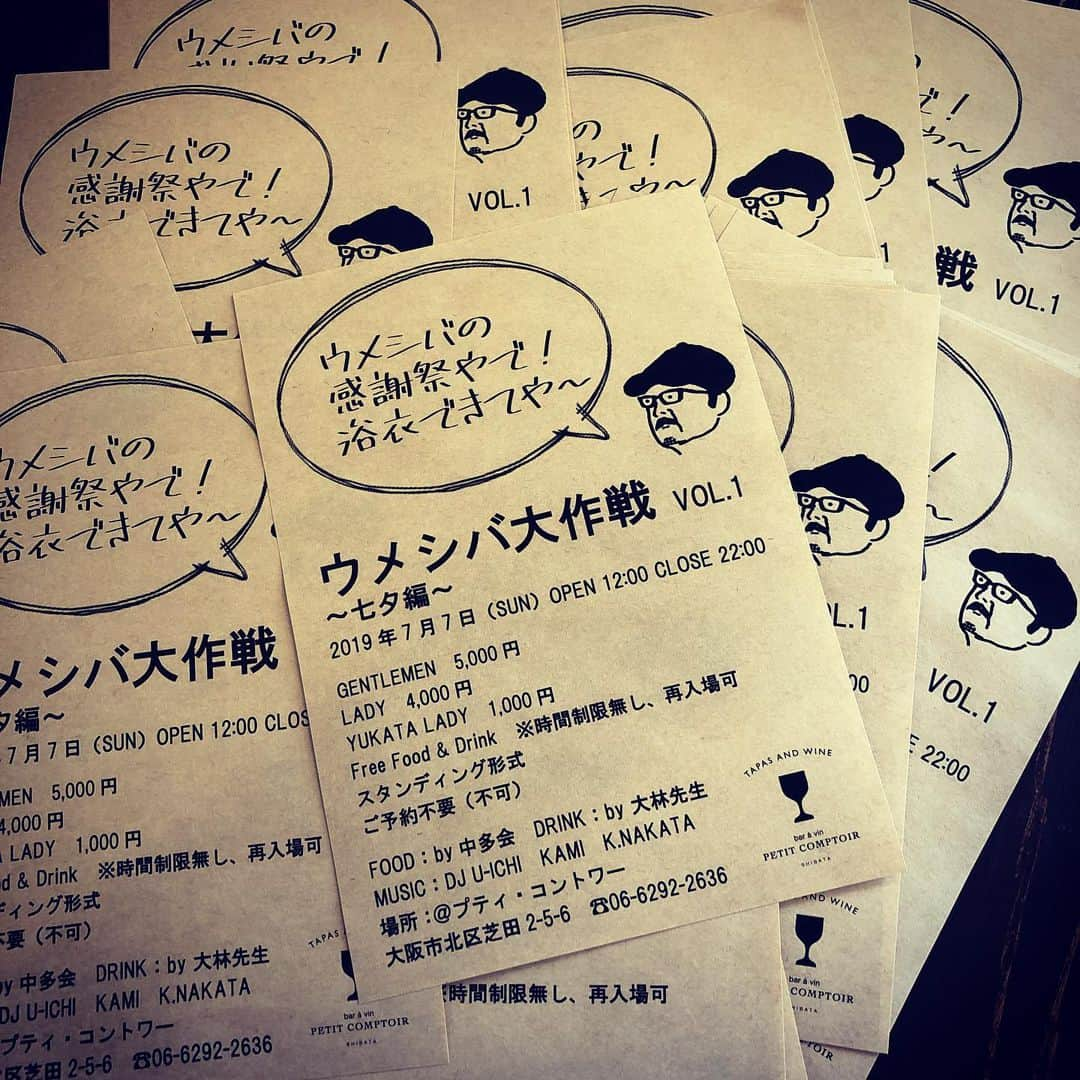 ウメシバの
感謝祭やで！
浴衣できてや〜
ウメシバ大作戦 VOL.1
〜七夕編〜
2019年7月7日（SUN）OPEN 12:00 CLOSE 22:00
GENTLEMEN 5,000円
LADY 4,000円
YUKATA LADY 1,000円
Free Food & Drink ※時間制限無し、再入場可
スタンディング形式
ご予約不要（不可）
FOOD：by 中多会 DRINK：by 大林先生
MUSIC：DJ U-ICHI KAMI K.NAKATA
場所：@プティ・コントワー
大阪市北区芝田 2-5-6 ☎06-6292-2636
TAPAS AND WINE
bar à vin
PETIT COMPTOIR
SHIBATA